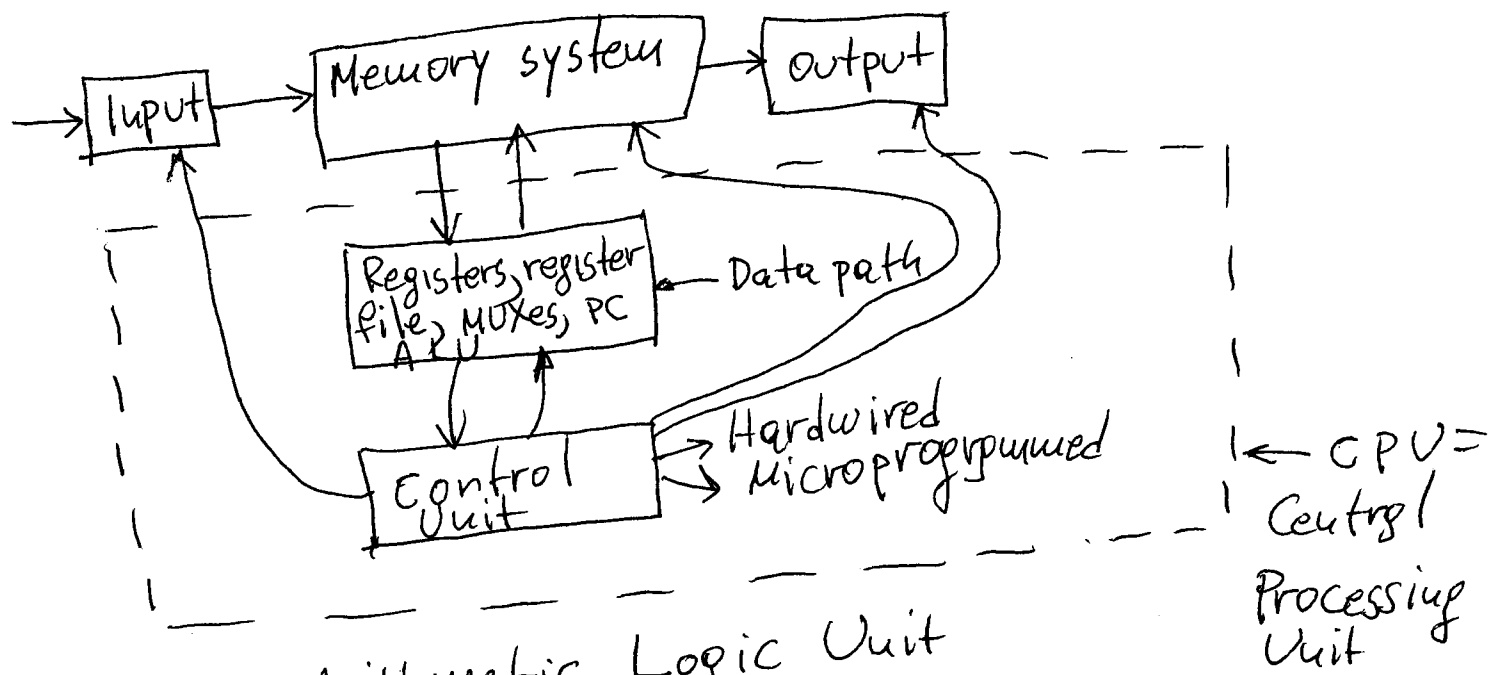 Input
Memory system
output
Registers, register
file, MUXes, PC
ALU
Data path
Control
Unit
Hardwired
Microprogrammed
CPU =
Central
Processing
Unit
Arithmetic Logic Unit